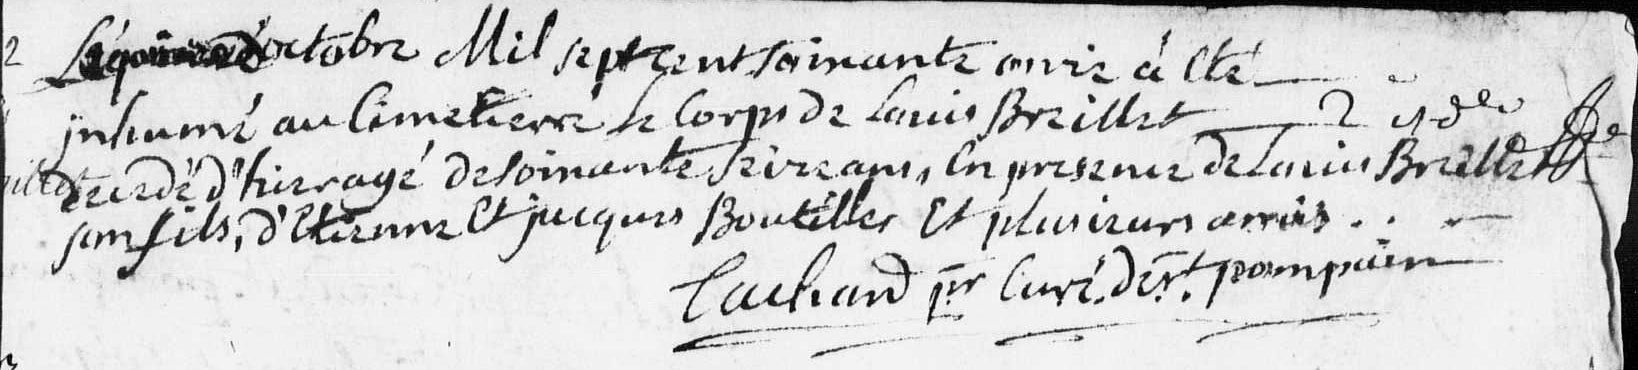 2 Le quinze octobre Mil sept cent soixante onze à été
jnhumé au Cimetierre le Corps de Louis Breillet
decedé d'hier agé de soixante seize ans, en presence de Louis Breillet
son fils, d'Etienne Et jacques Boutiller Et plusieurs amis . .
Cachard ptr Curé de st pompain